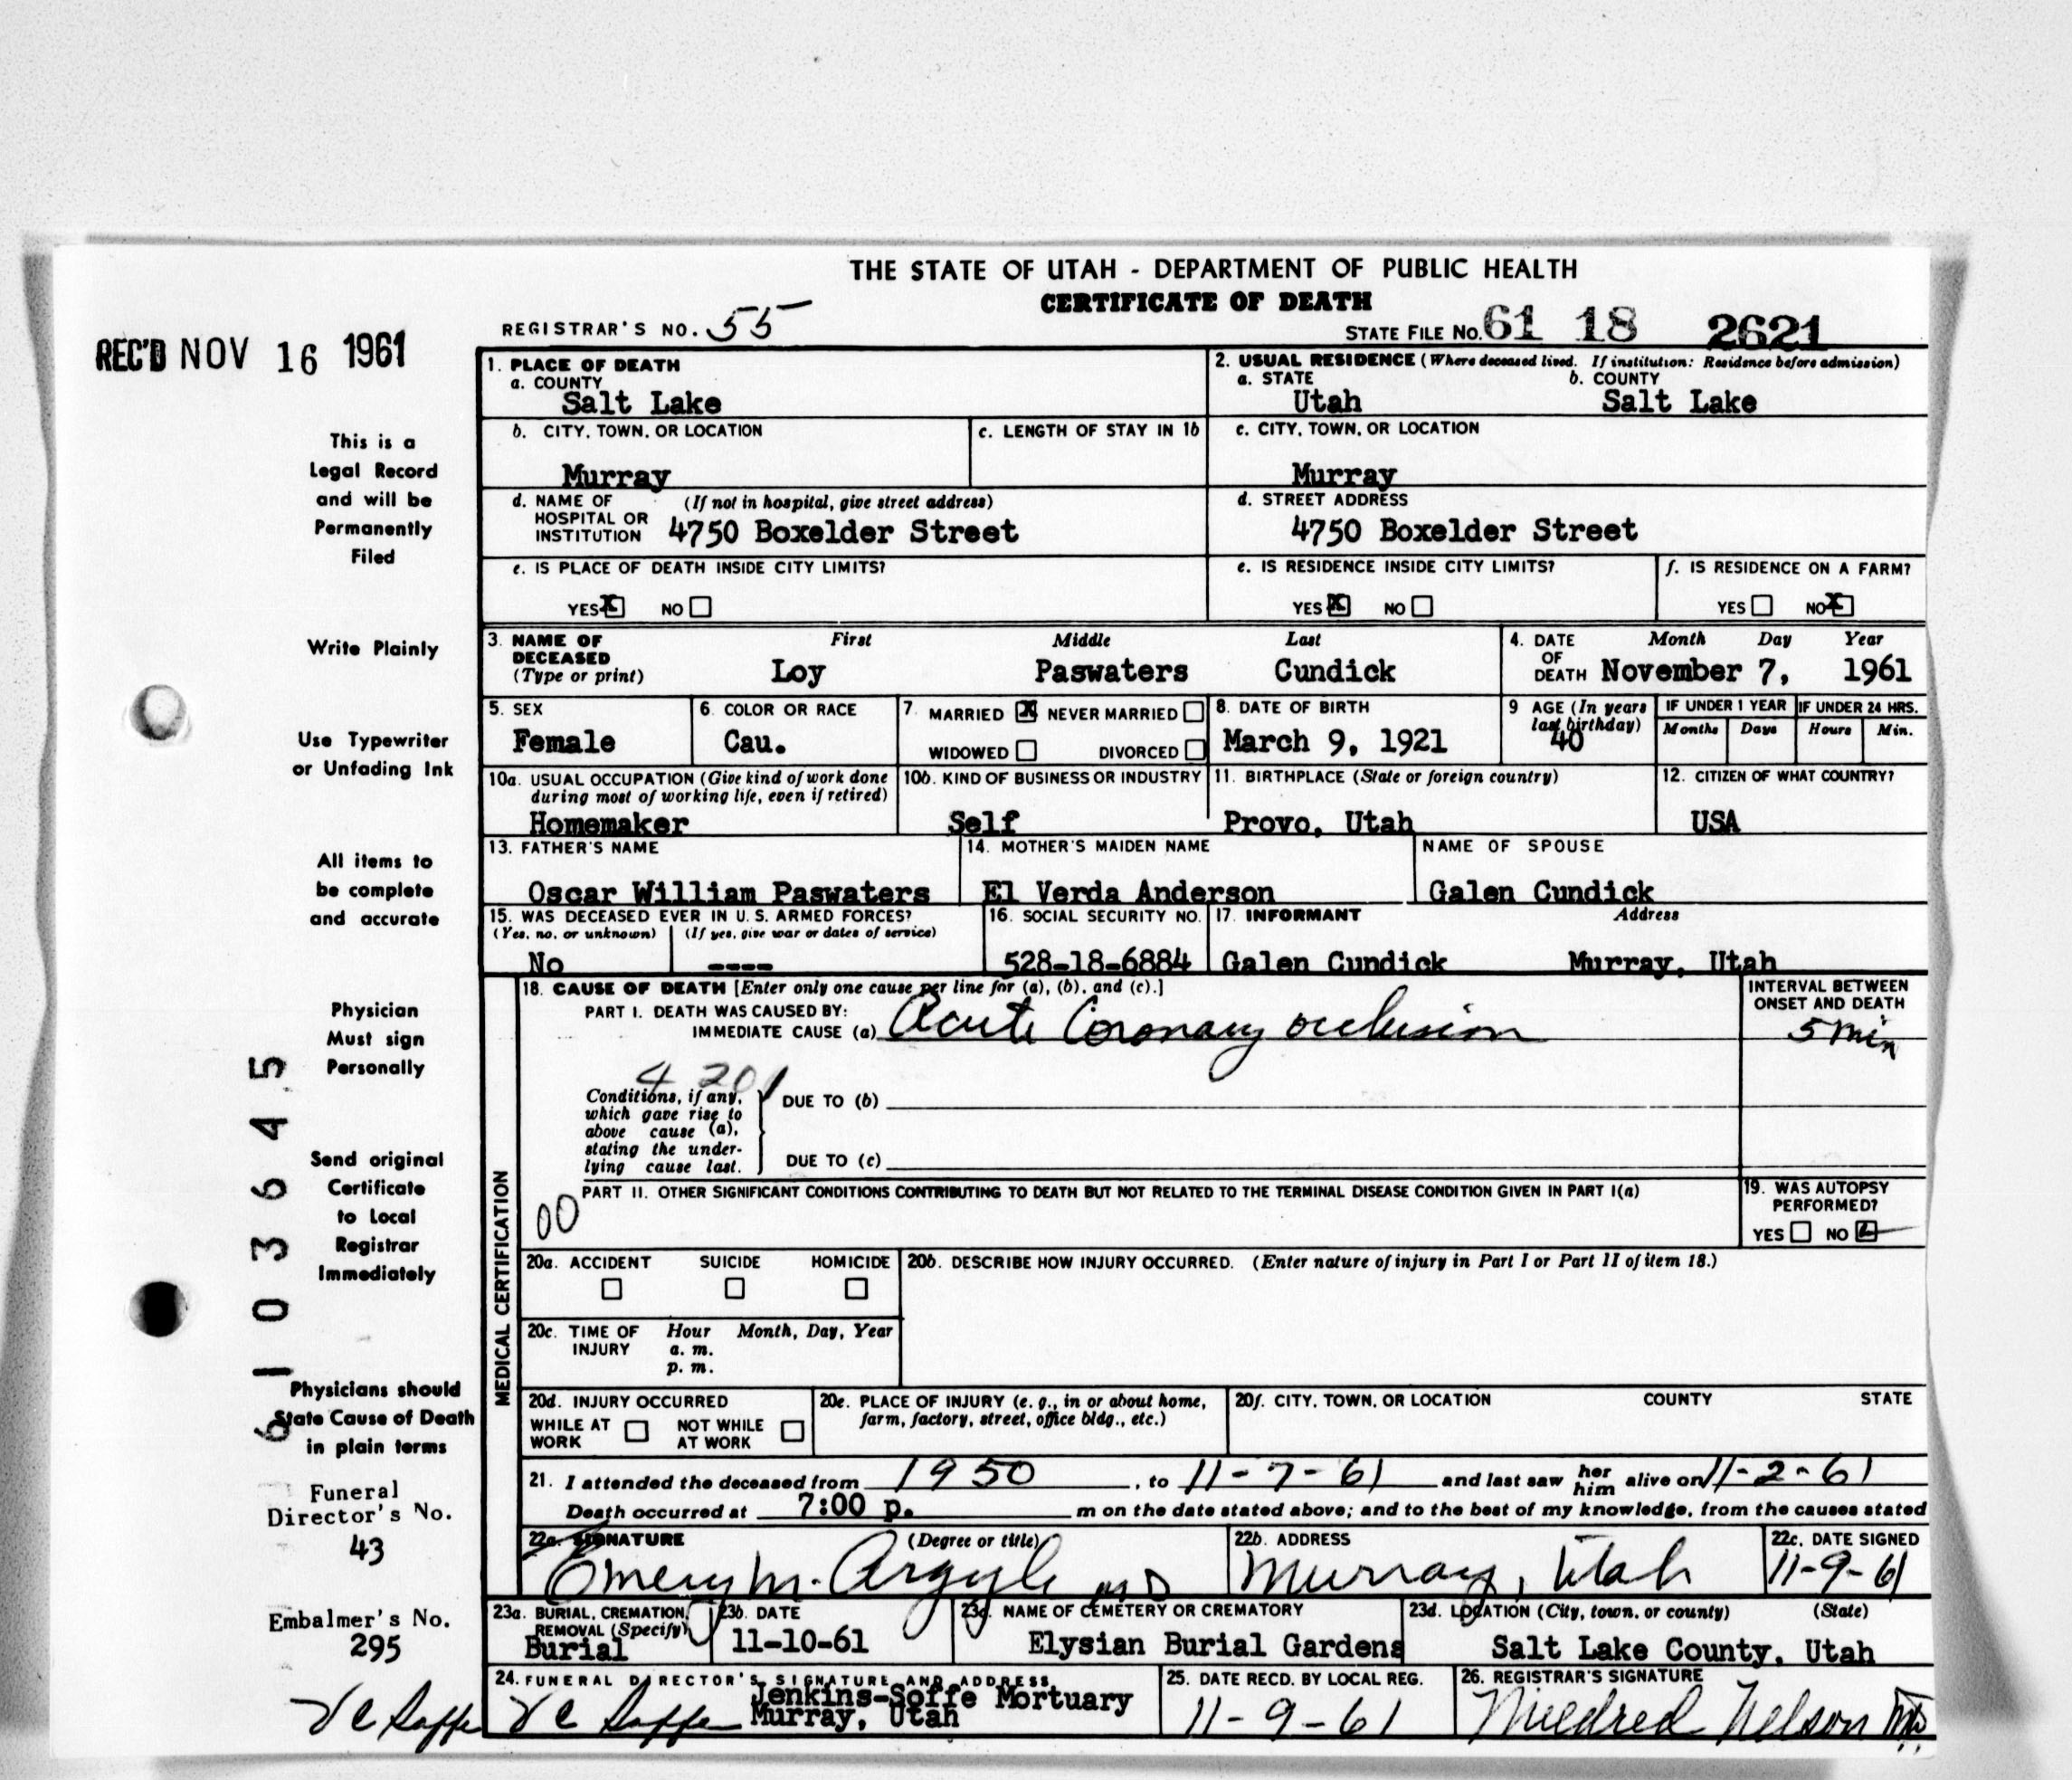 THE STATE OF UTAH - DEPARTMENT OF PUBLIC HEALTH
CERTIFICATE OF DEATH
REGISTRAR'S NO. 55
STATE FILE NO. 61 18 2621
REC'D NOV 16 1961
This is a
Legal Record
and will be
Permanently
Filed
Write Plainly
Use Typewriter
or Unfading Ink
All items to
be complete
and accurate
Physician
Must sign
Personally
Send original
Certificate
to Local
Registrar
Immediately
Physicians should
State Cause of Death
in plain terms
Funeral
Director's No.
43
Embalmer's No.
295
6103645
1. PLACE OF DEATH
a. COUNTY
Salt Lake
2. USUAL RESIDENCE (Where deceased lived. If institution: Residence before admission)
a. STATE b. COUNTY
Utah Salt Lake
b. CITY, TOWN, OR LOCATION
Murray
c. LENGTH OF STAY IN 1b
c. CITY, TOWN, OR LOCATION
Murray
d. NAME OF (If not in hospital, give street address)
HOSPITAL OR
INSTITUTION 4750 Boxelder Street
d. STREET ADDRESS
4750 Boxelder Street
e. IS PLACE OF DEATH INSIDE CITY LIMITS?
YES X NO
e. IS RESIDENCE INSIDE CITY LIMITS?
YES X NO
f. IS RESIDENCE ON A FARM?
YES NO X
3. NAME OF First Middle Last
DECEASED
(Type or print) Loy Paswaters Cundick
4. DATE Month Day Year
OF
DEATH November 7, 1961
5. SEX
Female
6. COLOR OR RACE
Cau.
7. MARRIED X NEVER MARRIED
WIDOWED DIVORCED
8. DATE OF BIRTH
March 9, 1921
9 AGE (In years
last birthday)
40
IF UNDER 1 YEAR
Months Days
IF UNDER 24 HRS.
Hours Min.
10a. USUAL OCCUPATION (Give kind of work done
during most of working life, even if retired)
Homemaker
10b. KIND OF BUSINESS OR INDUSTRY
Self
11. BIRTHPLACE (State or foreign country)
Provo, Utah
12. CITIZEN OF WHAT COUNTRY?
USA
13. FATHER'S NAME
Oscar William Paswaters
14. MOTHER'S MAIDEN NAME
El Verda Anderson
NAME OF SPOUSE
Galen Cundick
15. WAS DECEASED EVER IN U. S. ARMED FORCES?
(Yes, no, or unknown) (If yes, give war or dates of service)
No ----
16. SOCIAL SECURITY NO.
528-18-6884
17. INFORMANT Address
Galen Cundick Murray, Utah
MEDICAL CERTIFICATION
18. CAUSE OF DEATH [Enter only one cause per line for (a), (b), and (c).]
PART I. DEATH WAS CAUSED BY:
IMMEDIATE CAUSE (a) Acute Coronary occlusion
INTERVAL BETWEEN
ONSET AND DEATH
5 min
4 20 1
Conditions, if any,
which gave rise to
above cause (a),
stating the under-
lying cause last.
DUE TO (b)
DUE TO (c)
PART II. OTHER SIGNIFICANT CONDITIONS CONTRIBUTING TO DEATH BUT NOT RELATED TO THE TERMINAL DISEASE CONDITION GIVEN IN PART I(a)
00
19. WAS AUTOPSY
PERFORMED?
YES NO
20a. ACCIDENT SUICIDE HOMICIDE
20b. DESCRIBE HOW INJURY OCCURRED. (Enter nature of injury in Part I or Part II of item 18.)
20c. TIME OF Hour Month, Day, Year
INJURY a. m.
p. m.
20d. INJURY OCCURRED
WHILE AT NOT WHILE
WORK AT WORK
20e. PLACE OF INJURY (e. g., in or about home,
farm, factory, street, office bldg., etc.)
20f. CITY, TOWN, OR LOCATION COUNTY STATE
21. I attended the deceased from 1950, to 11-7-61 and last saw her him alive on 11-2-61
Death occurred at 7:00 p. m on the date stated above; and to the best of my knowledge, from the causes stated
22a. SIGNATURE (Degree or title)
Emery M. Argyle MD
22b. ADDRESS
Murray, Utah
22c. DATE SIGNED
11-9-61
23a. BURIAL, CREMATION,
REMOVAL (Specify)
Burial
23b. DATE
11-10-61
23c. NAME OF CEMETERY OR CREMATORY
Elysian Burial Gardens
23d. LOCATION (City, town, or county) (State)
Salt Lake County, Utah
24. FUNERAL DIRECTOR'S SIGNATURE AND ADDRESS
Jenkins-Soffe Mortuary
Murray, Utah
25. DATE RECD. BY LOCAL REG.
11-9-61
26. REGISTRAR'S SIGNATURE
Mildred Nelson